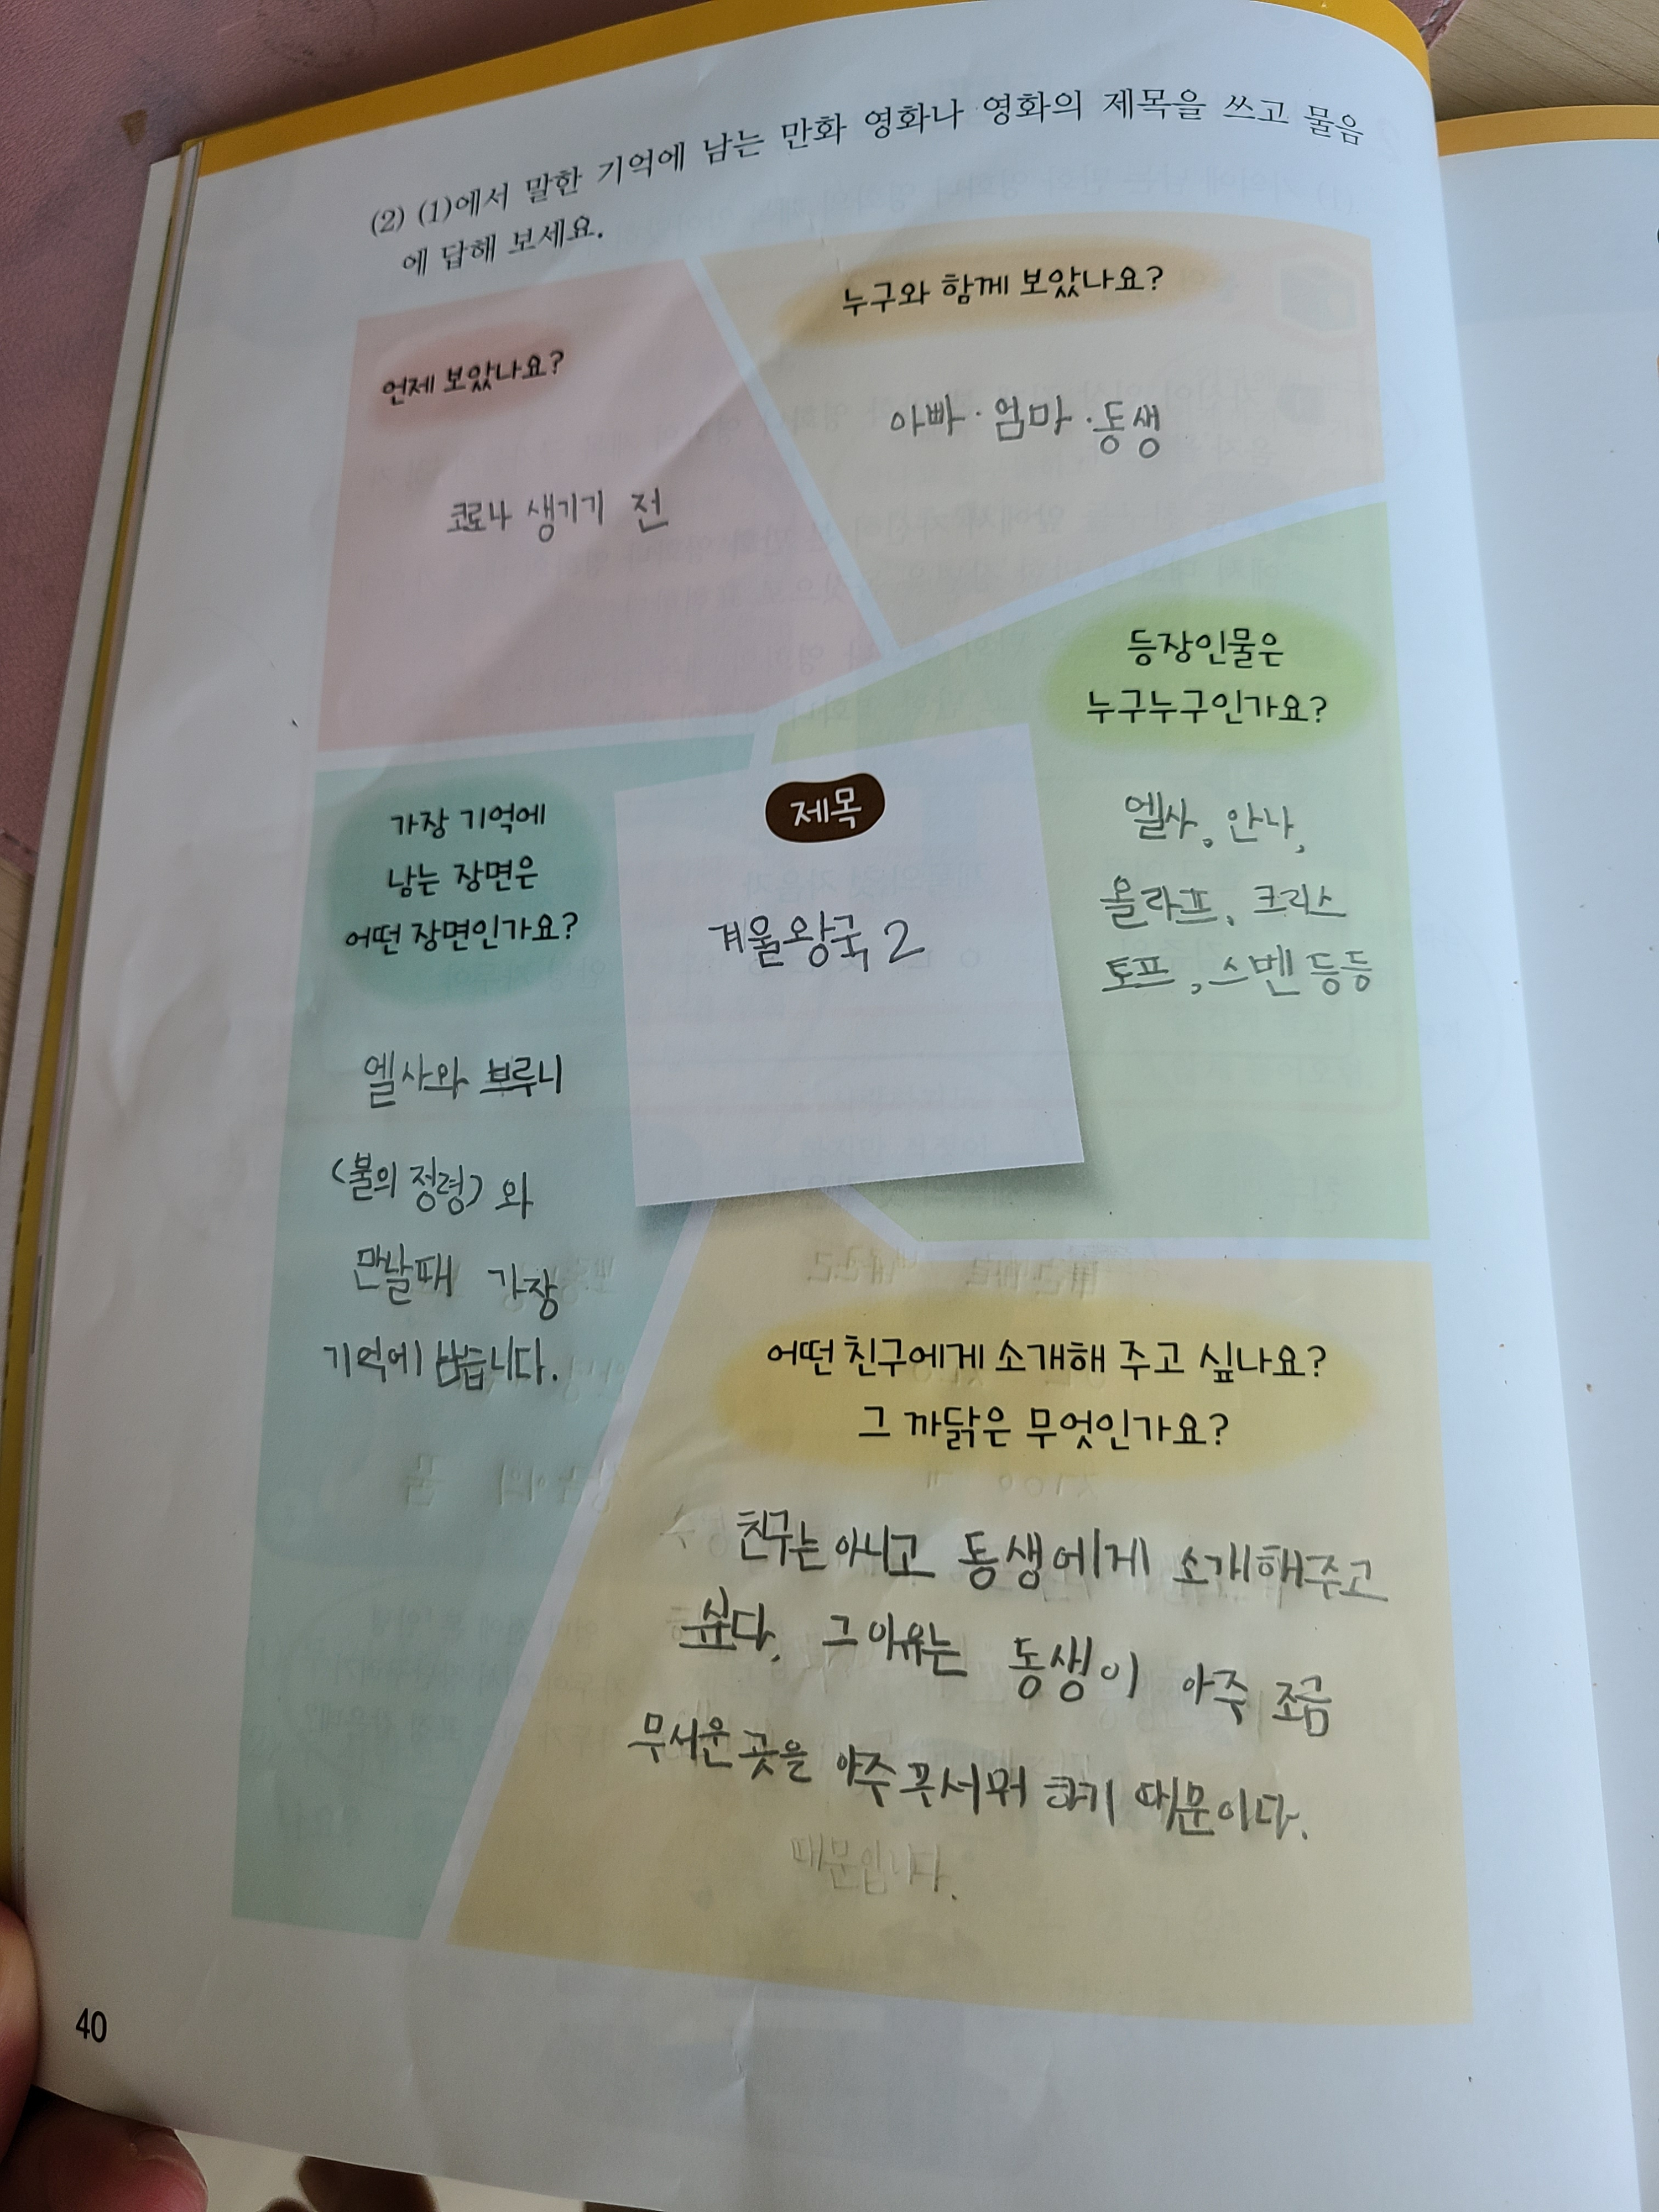 (2) (1)에서 말한 기억에 남는 만화 영화나 영화의 제목을 쓰고 물음
에 답해 보세요.
언제 보았나요?
코로나 생기기 전
누구와 함께 보았나요?
아빠·엄마·동생
등장인물은
누구누구인가요?
엘사, 안나,
올라프, 크리스
토프, 스벤 등등
제목
겨울왕국 2
가장 기억에
남는 장면은
어떤 장면인가요?
엘사와 브루니
(불의 정령)와
만날때 가장
기억에 남습니다.
어떤 친구에게 소개해 주고 싶나요?
그 까닭은 무엇인가요?
친구는 아니고 동생에게 소개해주고
싶다. 그 이유는 동생이 아주 조금
무서운 곳을 아주 무서워 하기 때문이다.
때문입니다.
40